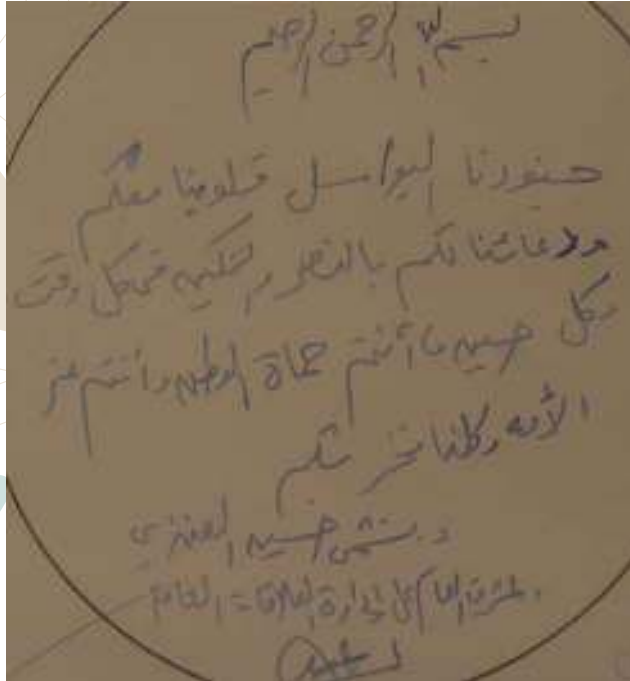 بسم الله الرحمن الرحيم
جنودنا البواسل قلوبنا معكم
ودعائنا لكم بالنصر والتمكين في كل وقت
وكل حين فأنتم حماة الوطن وأنتم عز
الأمة وكلنا فخر بكم
د. بن حسين العنزي
المشرف العام على إدارة العلاقات العامة